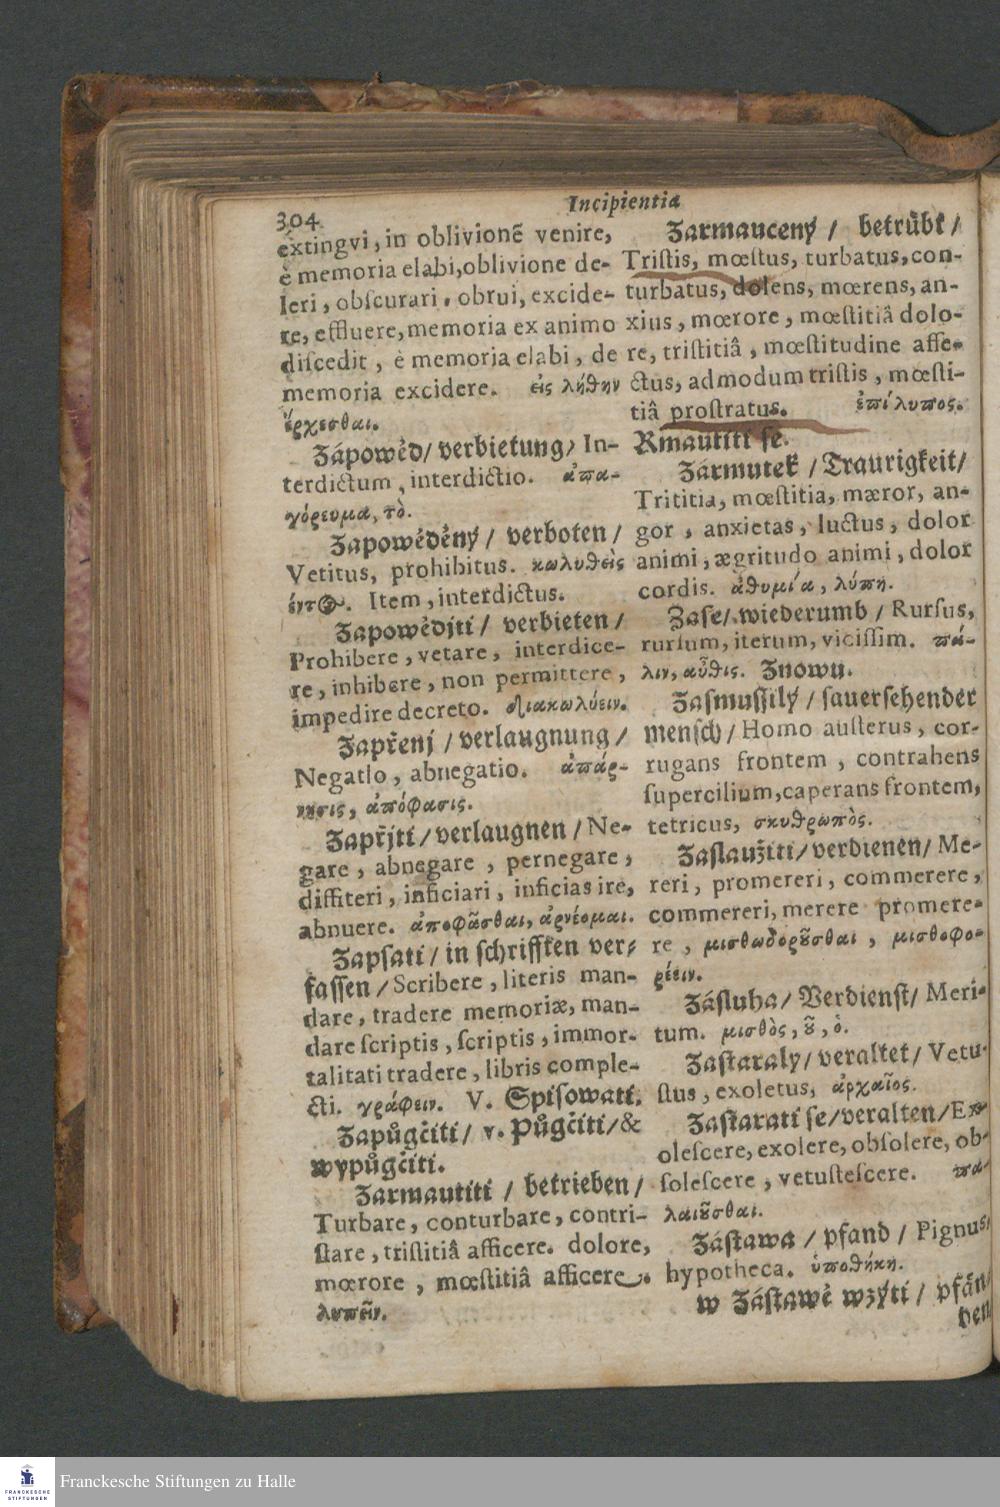 304
Incipientia
extingvi, in oblivionẽ venire,
è memoria elabi, oblivione de-
leri, obscurari, obrui, excide-
re, effluere, memoria ex animo
discedit, è memoria elabi, de
memoria excidere. εἰς λήθην
ἔρχεσθαι.
Zápowěd/ verbietung/ In-
terdictum, interdictio. ἀπα-
γόρευμα, τὸ.
Zapowěděný / verboten /
Vetitus, prohibitus. κωλυθεὶς
έντ@. Item, interdictus.
Zapowědjti / verbieten /
Prohibere, vetare, interdice-
re, inhibere, non permittere,
impedire decreto. διακωλύειν.
Zapřenj / verlaugnung /
Negatio, abnegatio. ἀπάρ-
νησις, ἀπόφασις.
Zapřjti / verlaugnen / Ne-
gare, abnegare, pernegare,
diffiteri, inficiari, inficias ire,
abnuere. ἀποφᾶσθαι, ἀρνέομαι.
Zapsati / in schrifften ver-
fassen / Scribere, literis man-
dare, tradere memoriæ, man-
dare scriptis, scriptis, immor-
talitati tradere, libris comple-
cti. γράφειν. V. Spisowati.
Zapůgčiti / v. Půgčiti / &
wypůgčiti.
Zarmautiti / betrieben /
Turbare, conturbare, contri-
stare, tristitiâ afficere. dolore,
mœrore, mœstitiâ afficere.
λυπεῖν.
Zarmaucený / betrübt /
Tristis, mœstus, turbatus, con-
turbatus, dolens, mœrens, an-
xius, mœrore, mœstitiâ dolo-
re, tristitiâ, mœstitudine affe-
ctus, admodum tristis, mœsti-
tiâ prostratus. ἐπίλυπος.
Rmautiti se.
Zármutek / Traurigkeit /
Trititia, mœstitia, mæror, an-
gor, anxietas, luctus, dolor
animi, ægritudo animi, dolor
cordis. ἀθυμία, λύπη.
Zase/ wiederumb / Rursus,
rursum, iterum, vicissim. πά-
λιν, αὖθις. Znowu.
Zasmussilý / sauersehender
mensch / Homo austerus, cor-
rugans frontem, contrahens
supercilium, caperans frontem,
tetricus, σκυθρωπὸς.
Zaslaužiti / verdienen / Me-
reri, promereri, commerere,
commereri, merere promere-
re, μισθωδορȣ͂σθαι, μισθοφο-
ρέειν.
Zásluha / Verdienst / Meri-
tum. μισθὸς, ȣ͂, ὁ.
Zastaraly / veraltet / Vetu-
stus, exoletus, ἀρχαῖος.
Zastarati se/veralten/Ex-
olescere, exolere, obsolere, ob-
solescere, vetustescere. πα-
λαιȣ͂σθαι.
Zástawa / pfand / Pignus,
hypotheca. ὑποθήκη.
w Zástawě wzýti / pfän-
den
Franckesche Stiftungen zu Halle
FRANCKESCHE
STIFTUNGEN